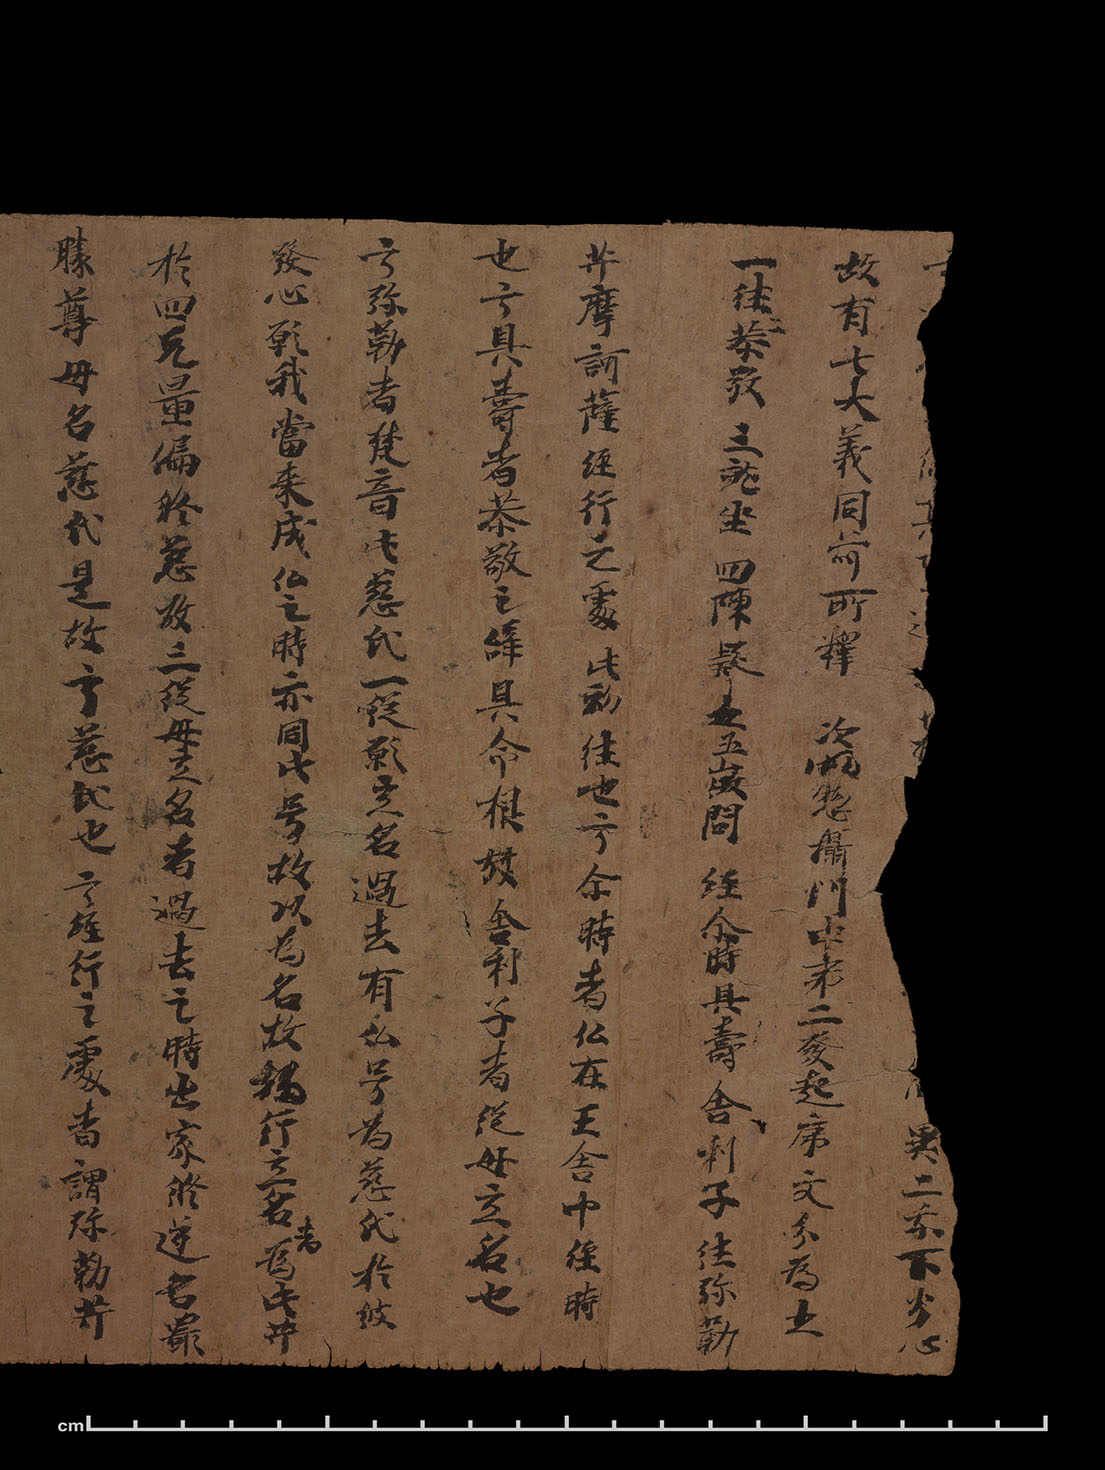 異二乘下劣心
故有七大義同前所釋 次明惣攝門中第二發起序文分為五
一往恭敬 三就坐 四陳疑 五正啟問 經尒時具壽舍利子往弥勒
菩摩訶薩經行之處 此初往也言尒時者仏在王舍中經時
也言具壽者恭敬之辞具命根故舍利子者從母立名也
言弥勒者梵音此慈氏一從願立名過去有仏号為慈氏於彼
發心願我當来成仏之時亦同此号故以為名故二行立名者為此菩
於四无量偏修慈故三從母立名者過去之時出家修道名嚴
勝尊母名慈氏是故言慈氏也 言經行之處者謂弥勒菩